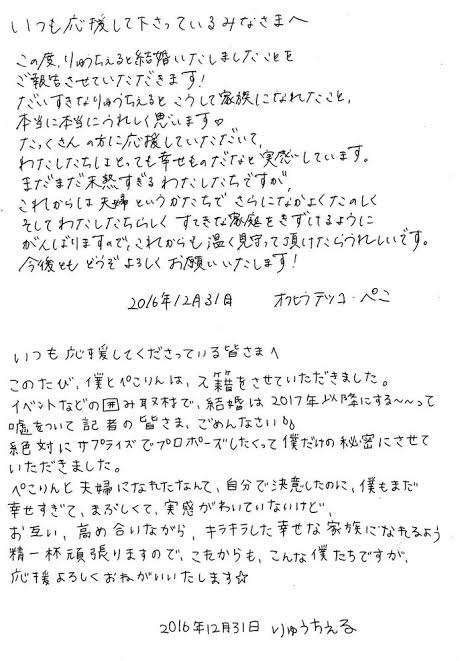 いつも応援して下さっているみなさまへ
この度、りゅうちぇると結婚いたしましたことを
ご報告させていただきます!
だいすきなりゅうちぇると こうして家族になれたこと、
本当に本当にうれしく思います♡
たっくさんの方に応援していただいて、
わたしたちはとっても幸せものだなと実感しています。
まだまだ未熟すぎるわたしたちですが、
これからは夫婦というかたちで さらになかよくたのしく
そしてわたしたちらしく すてきな家庭をきずけるように
がんばりますので、これからも温く見守って頂けたらうれしいです。
今後とも どうぞ よろしく お願いいたします!
2016年12月31日 オクヒラテツコ・ぺこ
いつも応援してくださっている皆さまへ
このたび、僕とぺこりんは、入籍をさせていただきました。
イベントなどの囲み取材で、結婚は2017年以降にする〜〜って
嘘をついて記者の皆さま、ごめんなさい
絶対にサプライズでプロポーズしたくって僕だけの秘密にさせて
いただきました。
ぺこりんと夫婦になれたなんて、自分で決意したのに、僕もまだ
幸せすぎて、まぶしくて、実感がわいていないけど、
お互い、高め合いながら、キラキラした幸せな家族になれるよう
精一杯頑張りますので、これからも、こんな僕たちですが、
応援よろしくおねがいいたします☆
2016年12月31日 りゅうちぇる